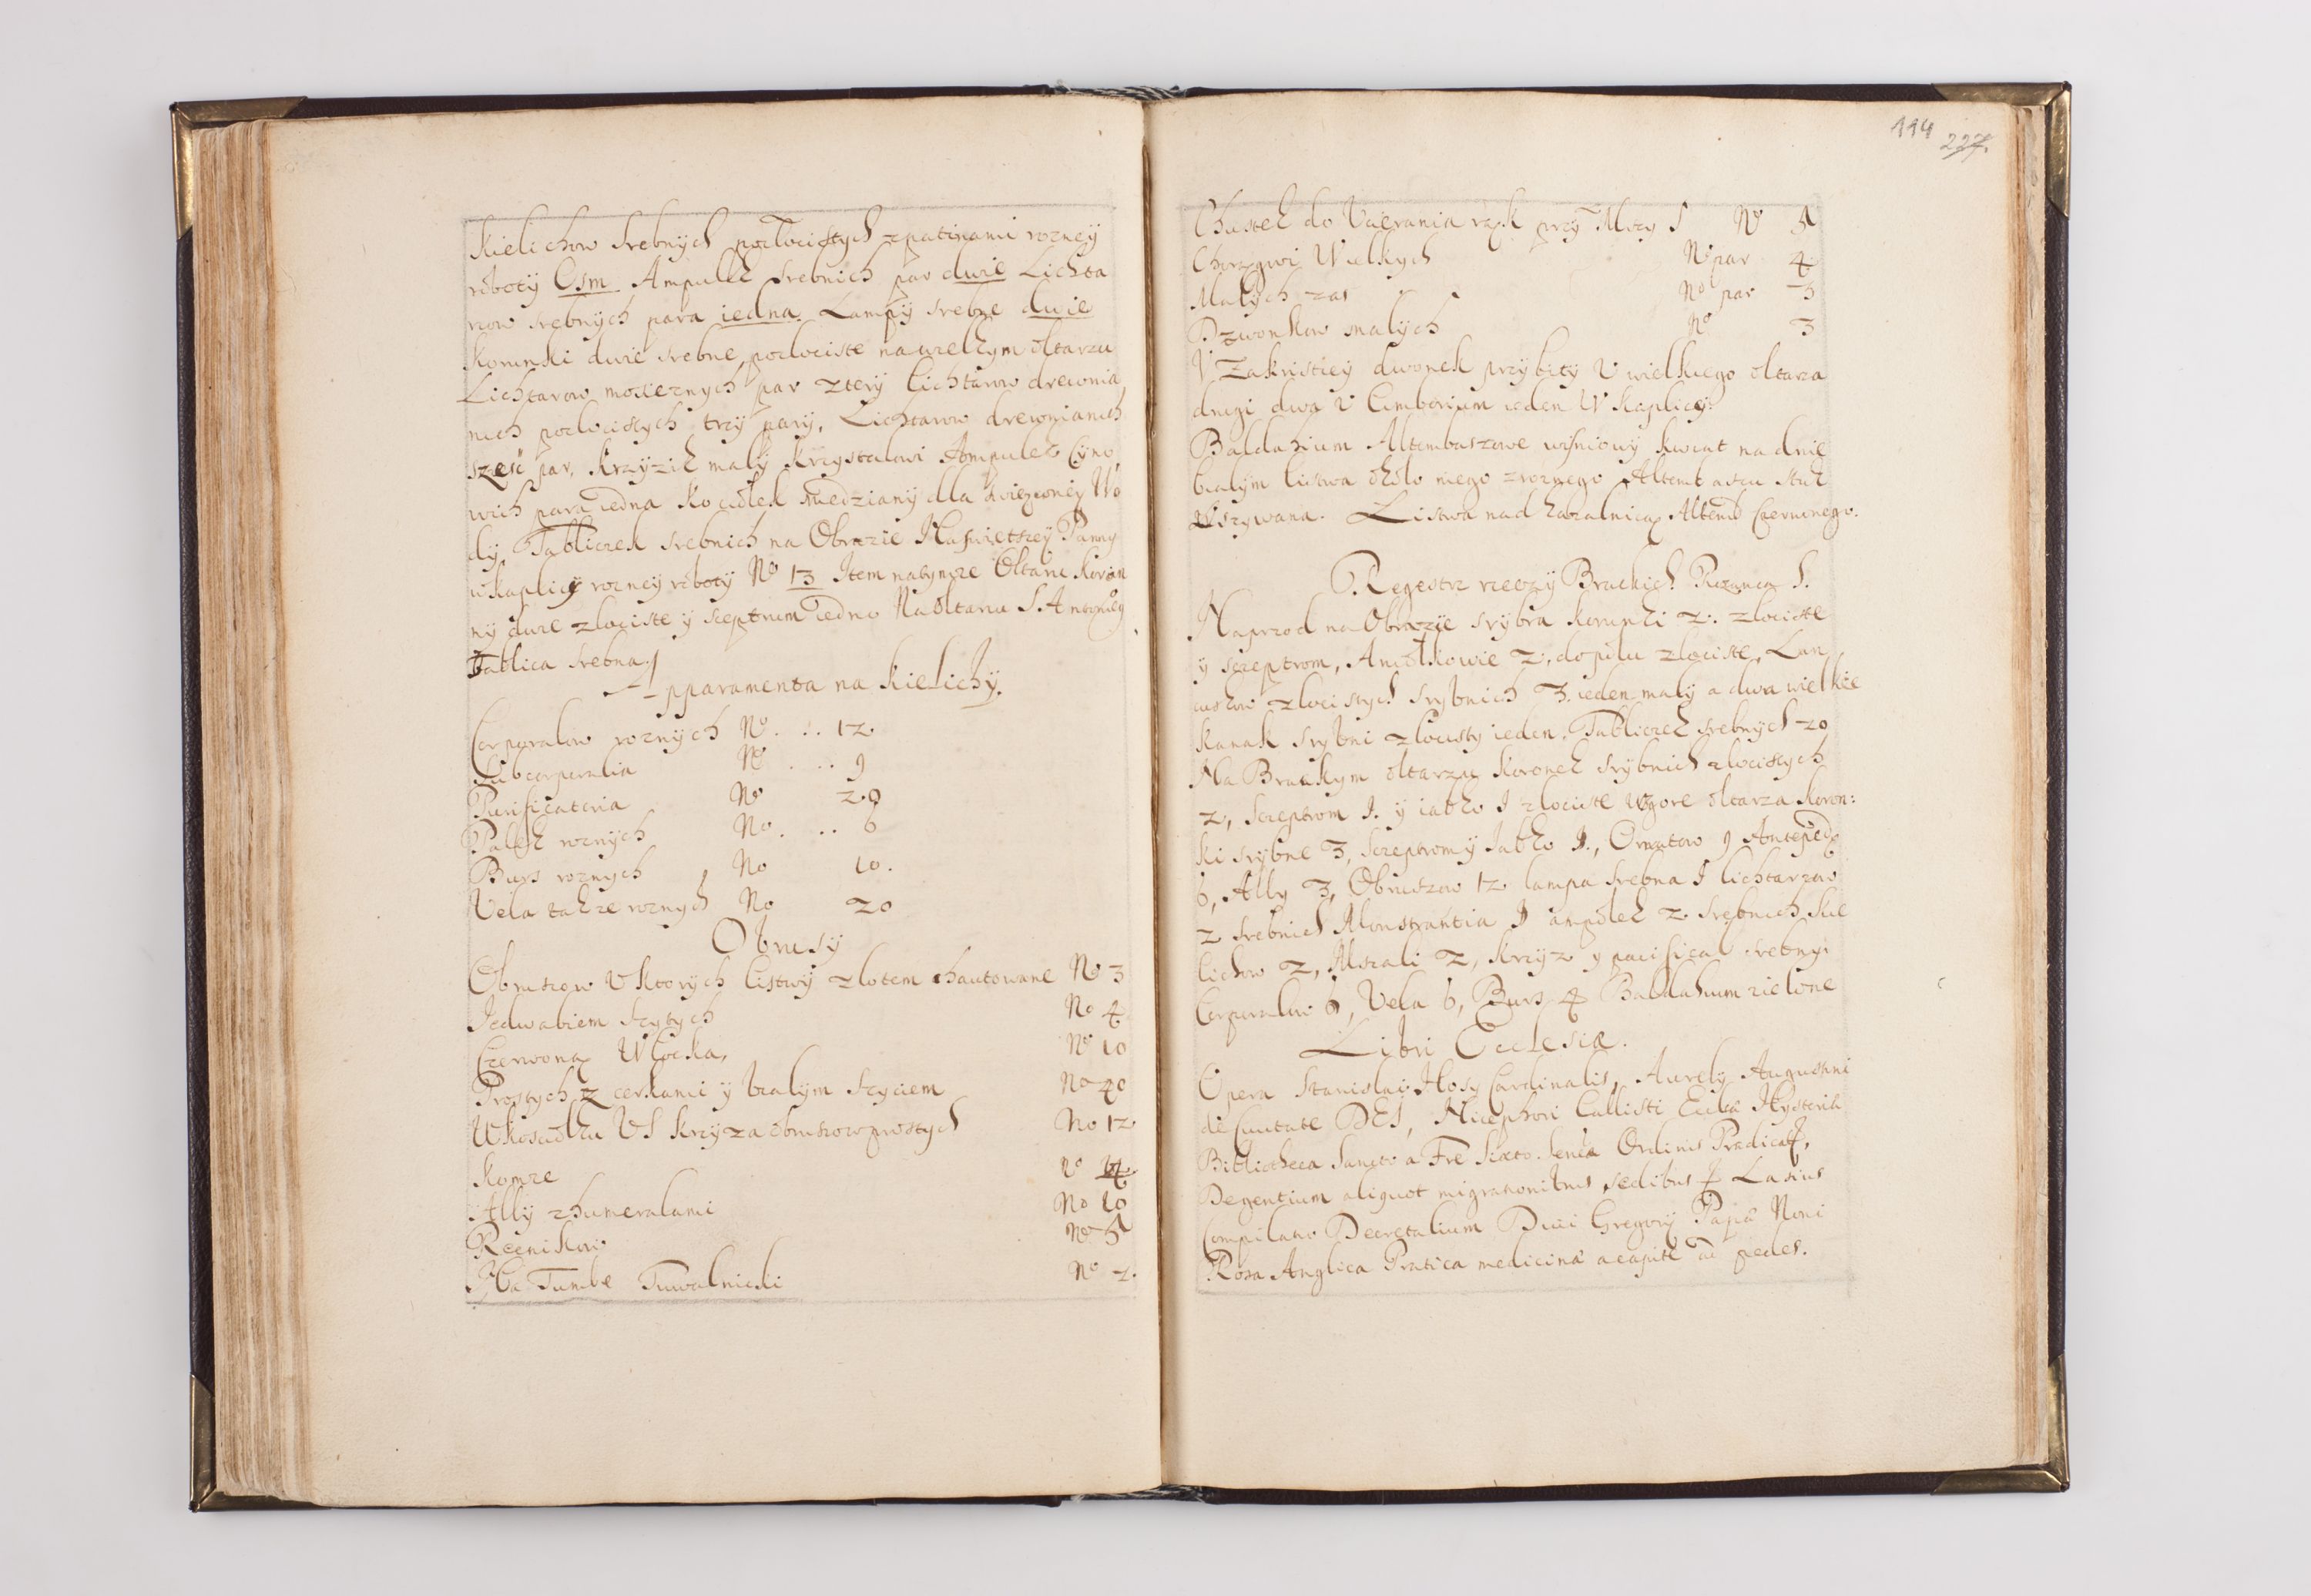 Kielichow srebnych pozłocistych z patinami rozney
roboty Osm Ampułek srebnich par dwie Lichta
rzow srebnych para iedna Lampy srebne dwie
Koronki dwie srebne pozłociste na wielkym ołtarzu
Lichtarow mosieznych par cztery lichtarow drewnia
nich pozłocistych trzy pary, Lichtarow drewnianich
szesc par, Krzyzik mały krzystalowi Ampułek Cyno
wich para iedna Kociołek miedziany dla swięconey Wo
dy Tabliczek srebnich na Obrazie Naswietszey Panny
w kaplicy rozney roboty No 13 Item na tymze Ołtarzu Koron
ny dwie złociste y sceptrum iedno Na ołtarzu S. Antoniego
Tablica srebna.
Apparamenta na kielichy.
Corporałow roznych No . .. 12.
Subcorporalia No . .. 9
Purificateria No 28
Palek roznych No . .. 6
Burs roznych No 10.
Vela takze roznych No 20
Obrusy
Obrusow U ktorych listwy złotem haftowane No 3
Jedwabiem szytych No 4
Czerwoną Włocką, No 10
Prostych z cerkami y białym szyciem No 40
W Kosciołku US Krzyza obrusow prostych No 12
Komze No 14.
Alby z humeralami No 10
Ręcnikow No 5
Na Tumbe Tuwalnicki No 2.
114 227.
Chustek do Ucierania rąk przy Mszy S No 5
Chorągwi Wielkych No par 4.
Małych zas No par 3
Dzwonkow małych No 3
W Zakristiey dwonek przybity U wielkiego ołtarza
drugi dwa U Cimborium ieden W kaplicy.
Baldahium Altembasowe wisniowy kwiat na dnie
białym listwa około niego z roznego Altembasu sztuk
Uszywana. Listwa nad kazalnicą Altemb Czerwonego.
Regestr rzeczy Brackich Rozanca S.
Naprzod na Obrazie srybra koronki 2. złociste
y sczeptrom, Aniołkowie 2, do połu złociste, Lan
cuskow złocistych srybnich 3. ieden mały a dwa wielkie
Kanak srybni złocisty ieden, Tabliczek srebnych 20
Na Brackym ołtarzu Koronek srybnich złocistych
2, Sczeptrom 1. y iabko 1 złociste Ugore ołtarza Koron:
ki srybne 3, sczeptrom y Jabko 1., Ornatow 9 Antepedia
6, Alby 3, Obrusow 12 lampa srebna 1 lichtarzow
2 srebnich Monstrantia 1 ampołek 2 srebnich Kie
lichow 2, Mszali 2, Krzyz y pacifical srebnyi
Corporałow 6, Vela 6, Burs 4 Baldahium zielone
Libri Ecclesiæ.
Opera Stanislai Hosy Cardinalis, Aurely Augustini
de Civitate DEI, Nicephori Callisti Eccla Hystoria
Bibliotheca Sancto a Fre Sixto Senen Ordinis Prædicat,
De gentium aliquot migrationibus, sedibus Lazius
Compilatio Decretalium Divi Gregory Papæ Noni
Rosa Anglica Pratica medicinæ a capite ad pedes.